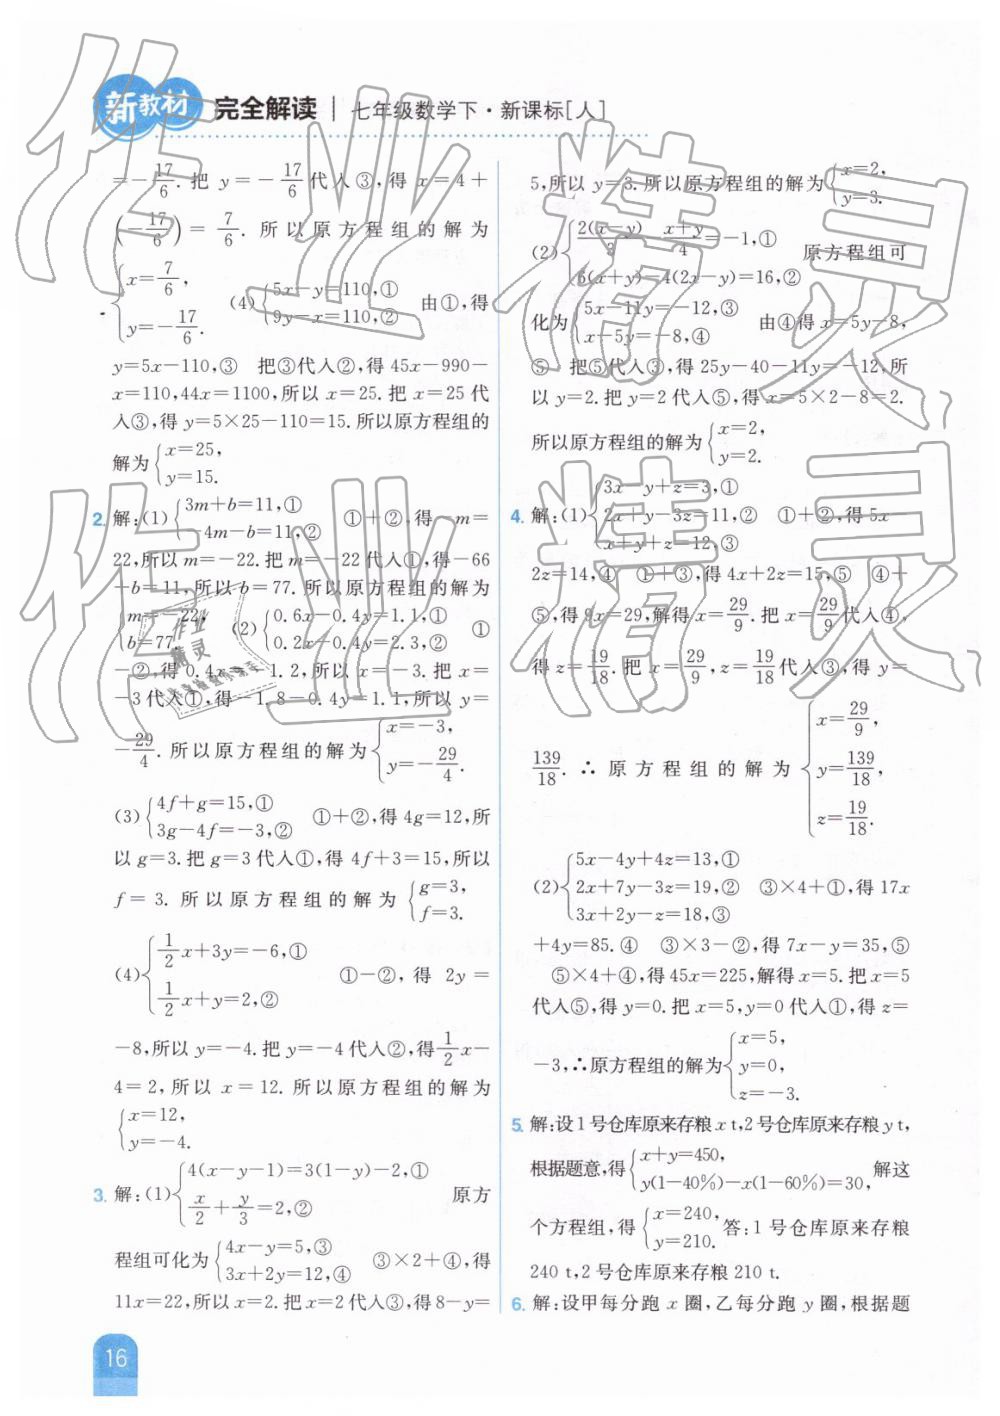 新教材 完全解读 | 七年级数学下·新课标[人]
=-17/6. 把 y=-17/6 代入③,得 x=4+
(-17/6)=7/6. 所以原方程组的解为
{x=7/6, y=-17/6. (4){5x-y=110,① 9y-x=110,② 由①,得
y=5x-110,③ 把③代入②,得 45x-990-
x=110,44x=1100,所以 x=25.把 x=25 代
入③,得 y=5×25-110=15.所以原方程组的
解为{x=25, y=15.
2. 解:(1){3m+b=11,① -4m-b=11,② ①+②,得 -m=
22,所以 m=-22.把 m=-22 代入①,得-66
+b=11,所以 b=77.所以原方程组的解为
{m=-22, b=77. (2){0.6x-0.4y=1.1,① 0.2x-0.4y=2.3,② ①
-②,得 0.4x=-1.2,所以 x=-3.把 x=
-3代入①,得-1.8-0.4y=1.1,所以 y=
-29/4.所以原方程组的解为{x=-3, y=-29/4.
(3){4f+g=15,① 3g-4f=-3,② ①+②,得 4g=12,所
以 g=3.把 g=3 代入①,得 4f+3=15,所以
f=3. 所以原方程组的解为{g=3, f=3.
(4){1/2x+3y=-6,① 1/2x+y=2,② ①-②,得 2y=
-8,所以 y=-4.把 y=-4 代入②,得1/2x-
4=2,所以 x=12. 所以原方程组的解为
{x=12, y=-4.
3. 解:(1){4(x-y-1)=3(1-y)-2,① x/2+y/3=2,② 原方
程组可化为{4x-y=5,③ 3x+2y=12,④ ③×2+④,得
11x=22,所以 x=2.把 x=2 代入③,得 8-y=
5,所以 y=3.所以原方程组的解为{x=2, y=3.
(2){2(x-y)/3-x+y/4=-1,① 6(x+y)-4(2x-y)=16,② 原方程组可
化为{5x-11y=-12,③ x-5y=-8,④ 由④得 x=5y-8,
⑤ 把⑤代入③,得 25y-40-11y=-12,所
以 y=2.把 y=2 代入⑤,得 x=5×2-8=2.
所以原方程组的解为{x=2, y=2.
4. 解:(1){3x-y+z=3,① 2x+y-3z=11,② x+y+z=12,③ ①+②,得 5x-
2z=14,④ ①+③,得 4x+2z=15,⑤ ④+
⑤,得 9x=29,解得 x=29/9.把 x=29/9代入④,
得 z=19/18.把 x=29/9,z=19/18代入③,得 y=
139/18.∴原方程组的解为{x=29/9, y=139/18, z=19/18.
(2){5x-4y+4z=13,① 2x+7y-3z=19,② 3x+2y-z=18,③ ③×4+①,得 17x
+4y=85.④ ③×3-②,得 7x-y=35,⑤
⑤×4+④,得 45x=225,解得 x=5.把 x=5
代入⑤,得 y=0.把 x=5,y=0 代入①,得 z=
-3,∴原方程组的解为{x=5, y=0, z=-3.
5. 解:设 1 号仓库原来存粮 x t,2 号仓库原来存粮 y t,
根据题意,得{x+y=450, y(1-40%)-x(1-60%)=30, 解这
个方程组,得{x=240, y=210. 答:1 号仓库原来存粮
240 t,2 号仓库原来存粮 210 t.
6. 解:设甲每分跑 x 圈,乙每分跑 y 圈,根据题
16
作业精灵
作业精灵
作业
精灵